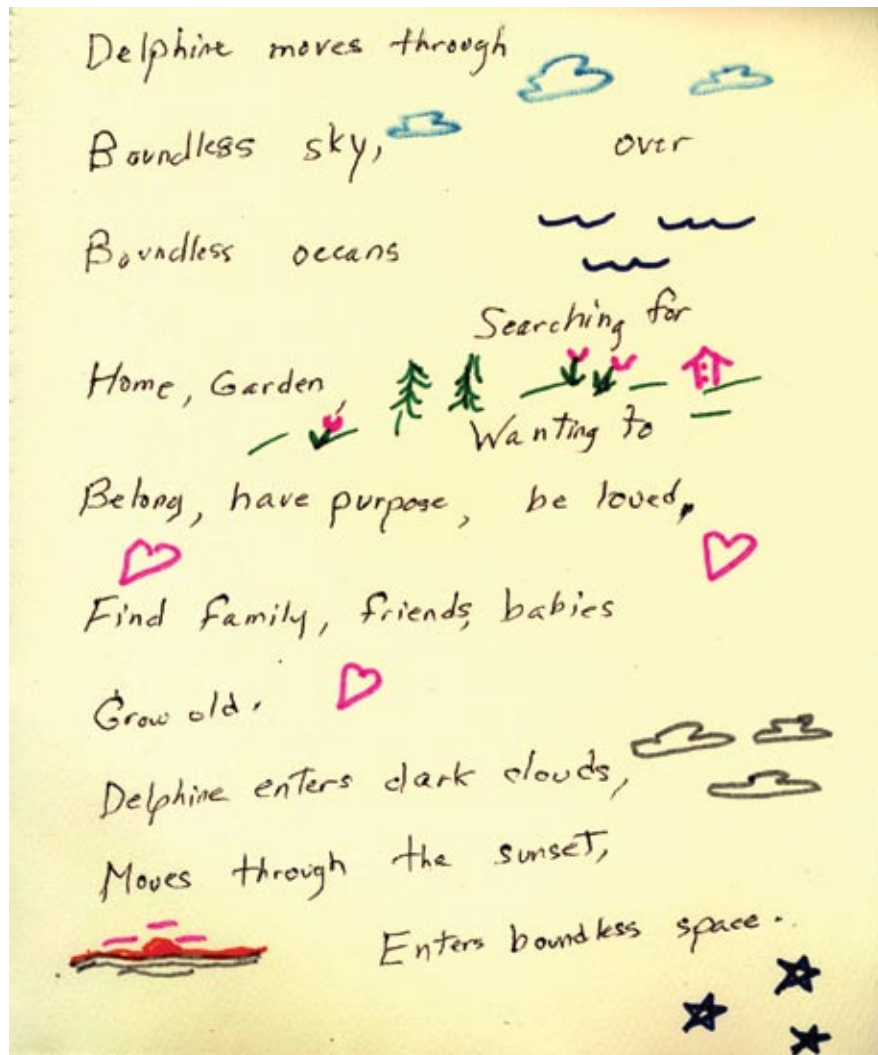 Delphine moves through
Boundless sky, over
Boundless oceans
Searching for
Home, Garden,
Wanting to
Belong, have purpose, be loved,
Find family, friends, babies
Grow old.
Delphine enters dark clouds,
Moves through the sunset,
Enters boundless space.